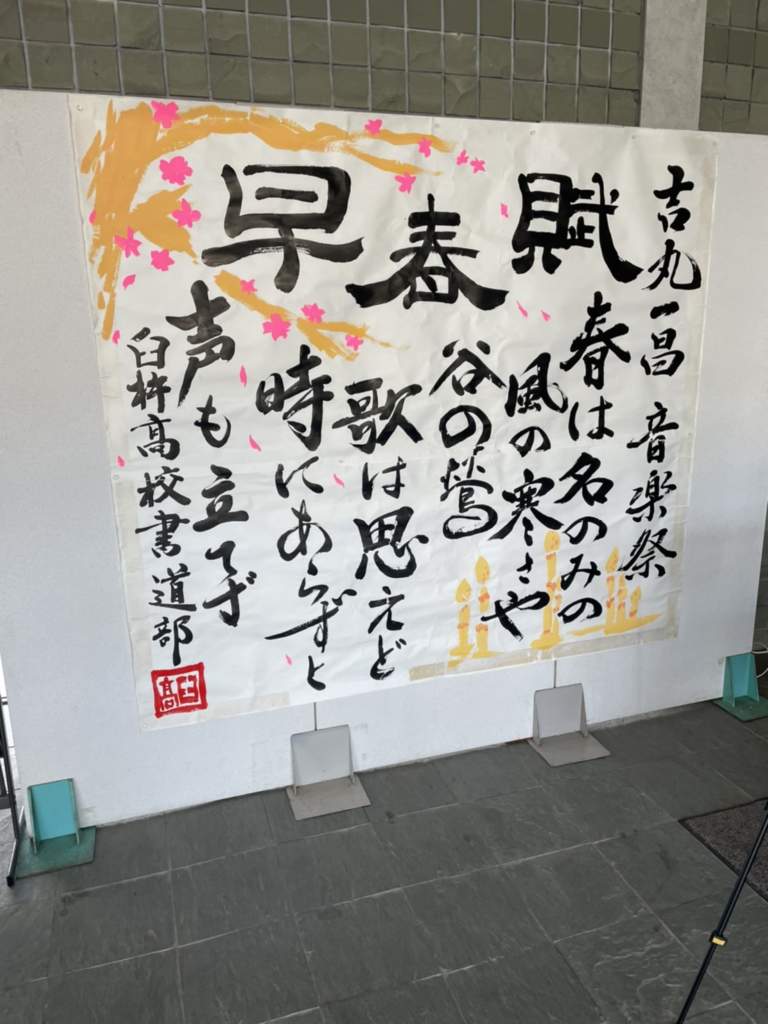 吉丸一昌 音楽祭
早春賦
春は名のみの
風の寒さや
谷の鶯
歌は思えど
時にあらずと
声も立てず
臼杵高校書道部
臼高